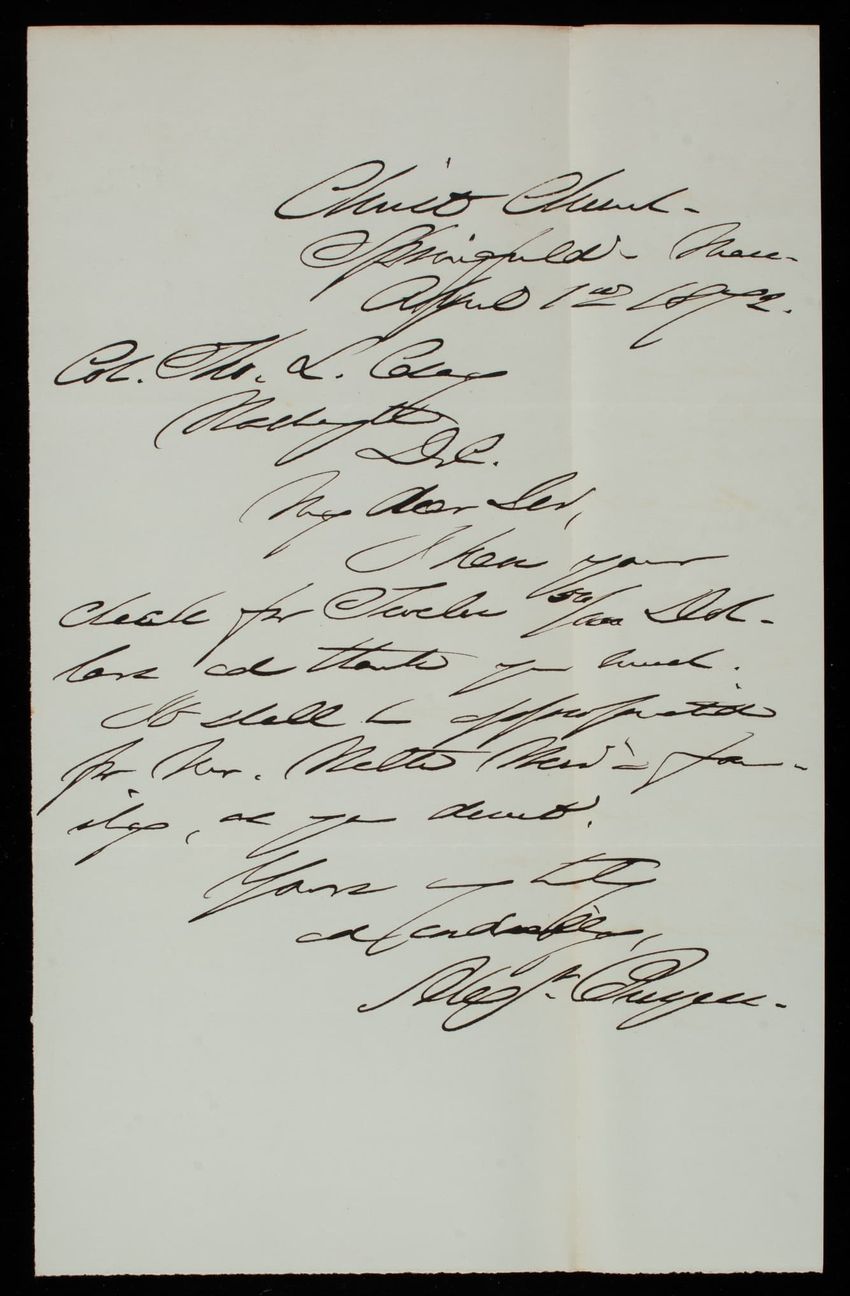 Christ Church -
Springfield - Mass -
April 1st 1872.
Col. Tho. L. Casey
Washington
D.C.
My dear Sir,
I have your
check for Twelve 50/100 Dol-
lars and thank you much.
It shall be appropriated
for Mr. fam-
ily, as you desired.
Yours very truly
and cordially,
Alexr. Burgess -